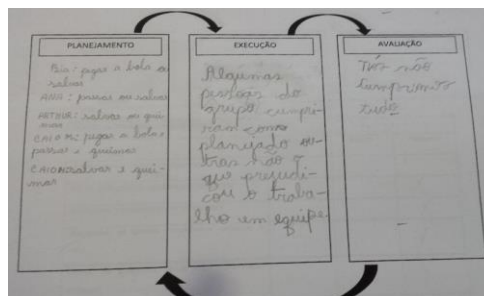 PLANEJAMENTO
Bia: pegar a bola ou
salvar
ANA: passar ou salvar
ARTHUR: salvar ou quei
mar
CAIO M: pegar a bola,
passar e queimar
CAIO salvar e quei-
mar
EXECUÇÃO
Algumas
pessoas do
grupo cumpri-
ram como
planejado ou-
tras não o
que prejudi-
cou o traba-
lho em equipe
AVALIAÇÃO
Nós não
cumprimento
tudo